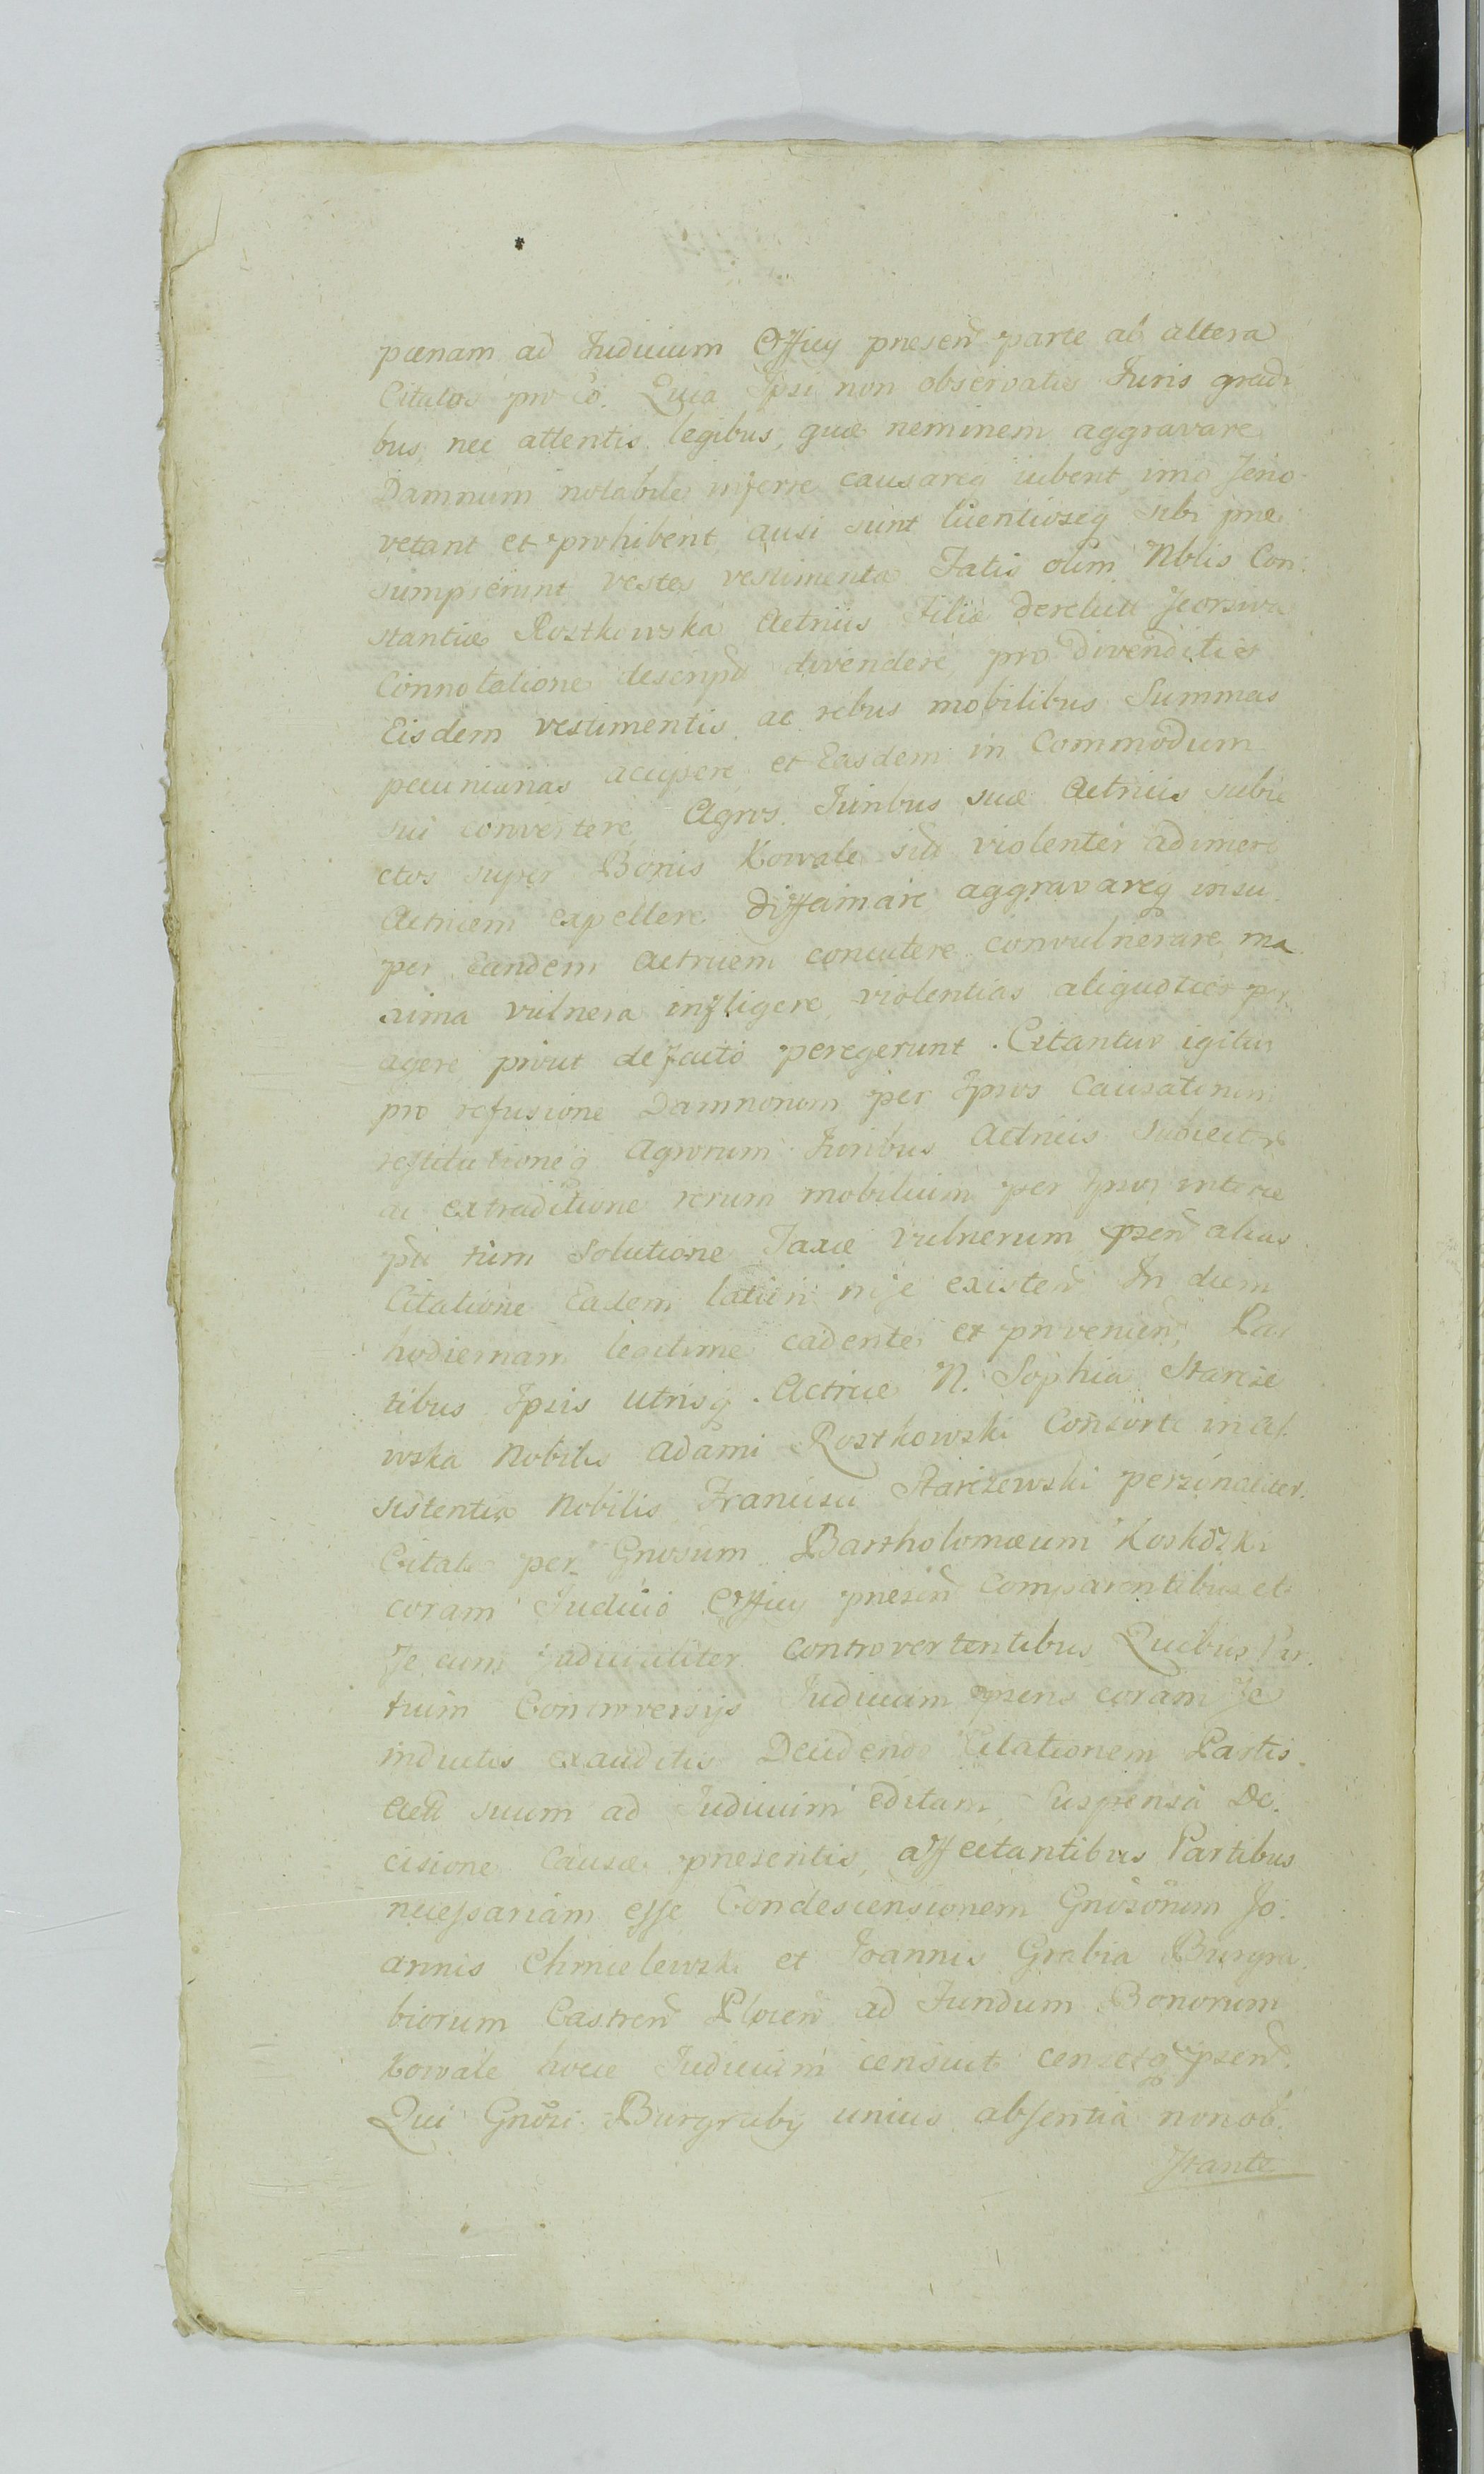 pœnam ad Iudicium Officij præsen parte ab altera
Citatos pro eo. Quia Ipsi non observatis Iuris gradi
bus, nec attentis legibus, quæ neminem aggravare
Damnum notabile inferre causareq iubent, imo serio
vetant et prohibent, ausi sunt licentioseq sibi præ
sumpserunt vestes vestimenta Fatis olim Nblis Con
stantiæ Rostkowska Actricis Filiæ derelicta seorsiva
Connotatione descripta divendere, pro divenditis
Eisdem vestimentis ac rebus mobilibus Summas
pecuniarias accipere et Easdem in Commodum
sui convertere, Agros Iuribus suæ Actricis subie
ctos super Bonis Kowale sitos violenter adimere
Actricem expellere diffamare aggravareq insu
per Eandem Actricem concutere convulnerare, ma
xima vulnera infligere, violentias aliquoties per
agere prout de facto peregerunt. Citantur igitur
pro refusione Damnorum per Ipsos Causatorum
restitutioneq Agrorum Iuribus Actricis Subiector
ac extraditione rerum mobilium per Ipsos interce
pta tum Solutione Taxæ vulnerum præsen alias
Citatione Eadem latiori in se existen In diem
hodiernam legitime cadente et provenien, Par
tibus Ipsis utrisq. Actrice N. Sophia Starcze
wska Nobilis Adami Rostkowski Consorte in As
sistentia Nobilis Francisci Starczewski personaliter.
Citatis per Gnosum Bartholomæum Koskowski
coram Iudicio Officij præsen comparentibus et
se cum iudicialiter controvertentibus Quibus Par
tium Controversijs Iudicium præsens coram se
inductis exauditis Decidendo Citationem Partis
Actæ suum ad Iudicium editam Suspensa De
cisione Causæ præsentis, affectantibus Partibus
necessariam esse Condescensionem Gnosorum Jo
annis Chmielewski et Joannis Grabia Burgra
biorum Castren Plocen ad Fundum Bonorum
Kowale hocce Iudicium censuit censetq præsen.
Qui Gnosi Burgrabij unius absentia non ob
stante